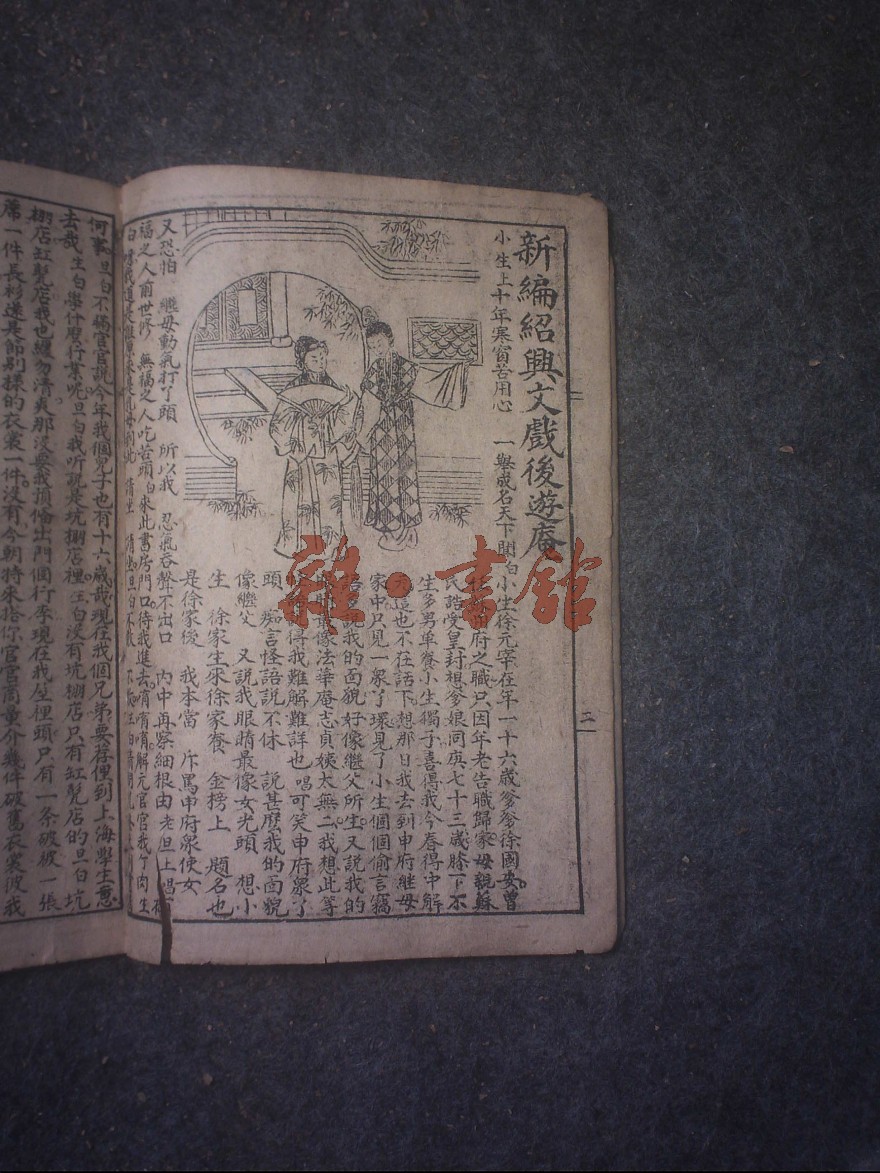 新編紹興文戲後遊庵
小生上十年寒窗苦用心 一舉成名天下聞白小生徐元宰在年一十六歲爹爹徐國安曾
府之職只因年老告職歸家母親蘇
氏誥受皇封想爹娘同庚七十三歲膝下不
生多男单餐小生獨子喜得我今春得中解
元這也不在話下想那日我去到申府继母
家中只見一衆丫環見了小生個個偷言竊
語說我的面貌好像继父所生又說我的
最像法華庵志貞姨太無二我想此等
得我難解難詳也唱可笑申府衆丫
頭 痴言怪語說不休 說甚麽我的面貌
像繼父 又說我眼睛最像女光頭 想小
生 徐家生來徐家餐 金榜上 題名也
是徐家後 我本當 斥罵申府衆使女
又恐怕 繼母動氣打丫頭 所以我 忍氣吞聲不出口 内中再察細根由老旦上唱有
福之人前世修 無福之人吃苦頭白來此書房門口待我進去唷唷唷解元官官我个肉生
何事旦白不瞞官官說今年我個兒子也有十六歲哉現在我個兄弟要荐俚到上海學生意
去哉生白學什麽行業呢旦白我听說是坑棚店裡生白没有坑棚店只有缸甏店的旦白坑
棚店缸甏店我也纏勿清爽那没要我預偹出門個行李現在我屋裡頭只有一条破被一張
蓆一件長衫還是節別樣的衣裳一件没有今朝特來搭你官官商量介幾件破舊衣裳波我
二
雜·書館